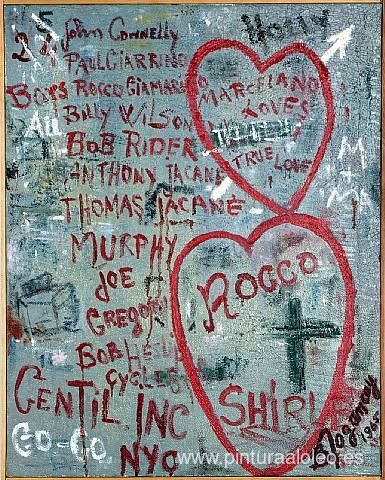 HOLLY
John Connelly
PAUL CIARRINO
BOYS ROCCO GIAMARINO
Billy WILSON
BOB RIDER
ANTHONY IACANE
THOMAS IACANE
MURPHY
JOE
GREGORY
BOB
CYCLES
GENTIL INC
GO-GO NYC
MARCELIANO
LOVES
TRUE LOVE
ROCCO
SHIRL
1965
www.pinturaaloleo.es